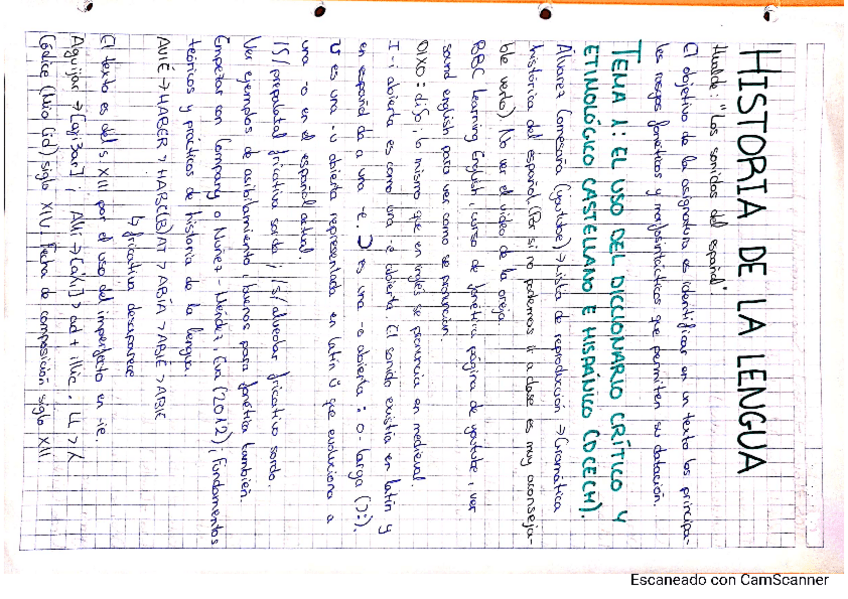 HISTORIA DE LA LENGUA
Hualde: "Los sonidos del español".
El objetivo de la asignatura es identificar en un texto los principa-
les rasgos fonéticos y morfosintácticos que permiten su datación.
TEMA 1: EL USO DEL DICCIONARIO CRÍTICO Y
ETIMOLÓGICO CASTELLANO E HISPÁNICO (DCECH).
Álvarez Comesaña (youtube) → Lista de reproducción → Gramática
histórica del español. (Por si no podemos ir a clase es muy aconseja-
ble verlo) No ver el vídeo de la oreja.
BBC learning English, curso de fonética página de youtube, ver
sound english para ver como se pronuncian.
DIXO: diʃo, lo mismo que en inglés se pronuncia en medieval.
I → i abierta es como una -e abierta. El sonido existía en latín y
en español da a una -e. Ɔ es una -o abierta: o- larga (Ɔ:).
Ʊ es una -u abierta representada en latín Ŭ que evoluciona a
una -o en el español actual.
/ʃ/ prepalatal fricativa sorda; /s/ alveolar fricativo sordo.
Ver ejemplos de asibilamiento, buenos para fonética también.
Empezar con Company o Núñez-Méndez, Eva (2012), Fundamentos
teóricos y prácticos de historia de la lengua.
AVIÉ → HABER > HABE(B)AT > ABÍA > ABIÉ > ABIE
↳ fricativa desaparece
El texto es del s XIII por el uso del imperfecto en -ie.
Alguijar → [agiʒar]; Alli → [aʎi] > ad + illic. LL > ʎ
Códice (Mio Cid) siglo XIV. Fecha de composición siglo XII
Escaneado con CamScanner